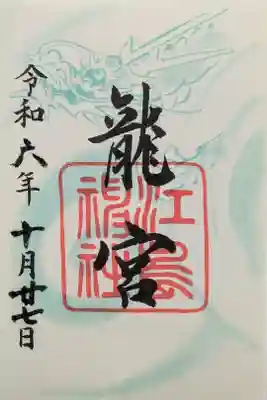 龍宮
江島神社
令和六年 十月廿七日